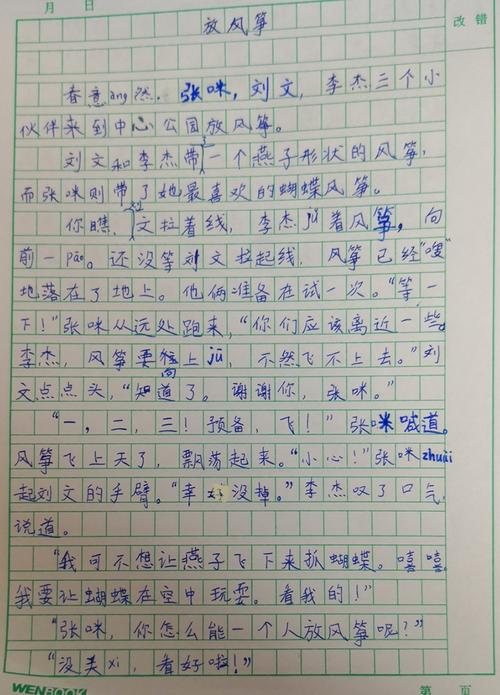 月 日
改错
放风筝
春意àng然，张咪，刘文，李杰三个小
伙伴来到中心公园放风筝。
刘文和李杰带了一个燕子形状的风筝，
而张咪则带了她最喜欢的蝴蝶风筝。
你瞧，刘文拉着线，李杰jǔ着风筝，向
前一pǎo。还没等刘文拉起线，风筝已经“嗖”
地落在了地上。他俩准备在试一次。“等一
下！”张咪从远处跑来，“你们应该离近一些。
李杰，风筝要向上jǔ，不然飞不上去。”刘
文点点头，“知道了。谢谢你，张咪。”
“一，二，三！预备，飞！”张咪喊道。
风筝飞上天了，飘荡起来。“小心！”张咪zhuài
起刘文的手臂。“幸好没掉。”李杰叹了口气
说道。
“我可不想让燕子飞下来抓蝴蝶。嘻嘻，
我要让蝴蝶在空中玩耍。看我的！”
“张咪，你怎么能一个人放风筝呢？”
“没关xi，看好啦！”
WENBOOK
第 页